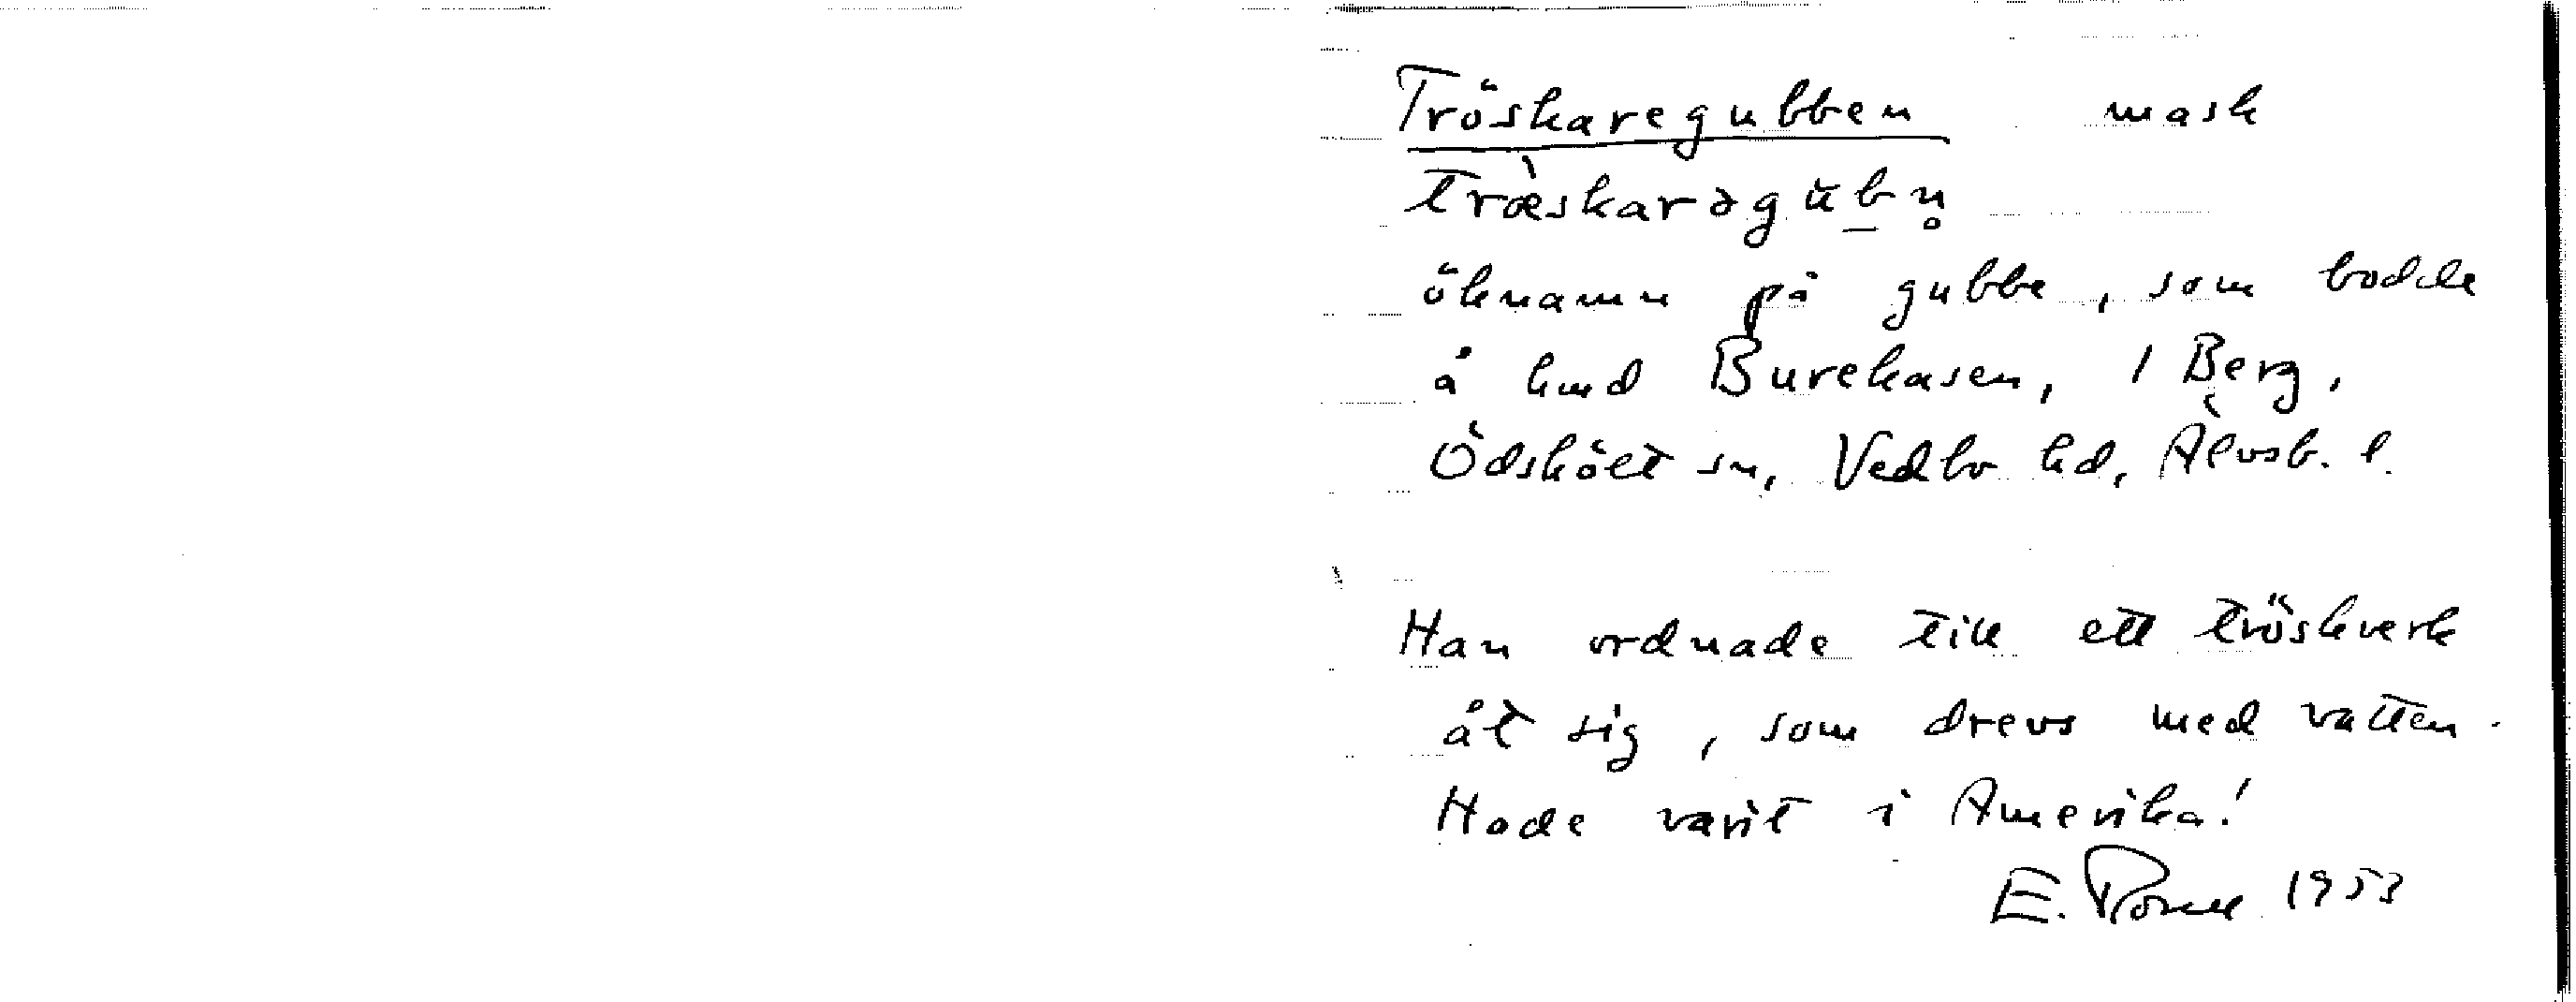 Tröskaregubben mask
træ̀skarəgŭbn̥
öknamn på gubbe, som bodde
å hmd Burekasen, 1 Berg,
Ödskölt sn, Vedbo hd, Älvsb. l.
Han ordnade till ett tröskverk
åt sig, som drevs med vatten.
Hade varit i Amerika!
E. 1953